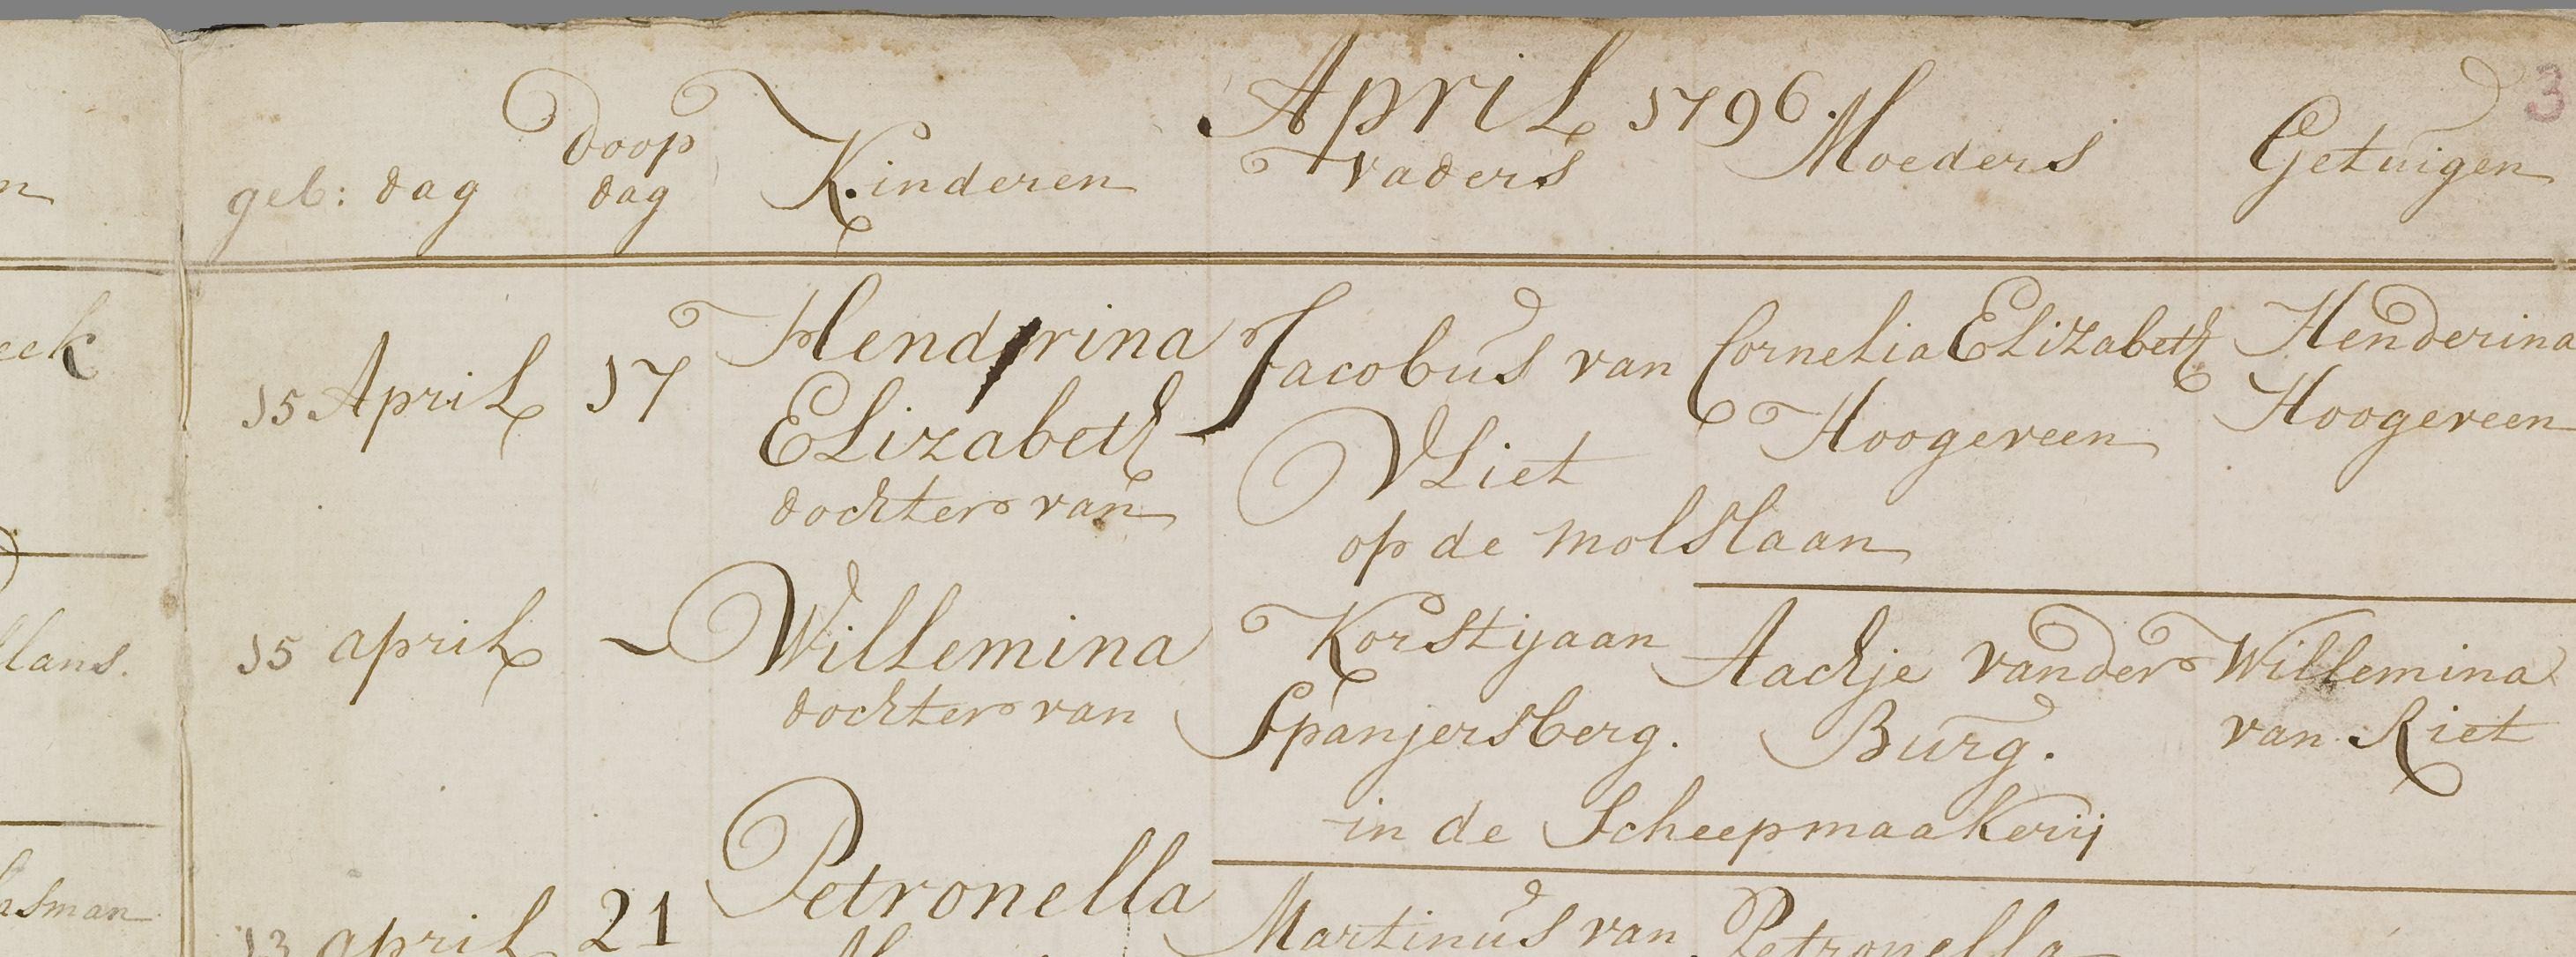 April 1796.
geb: dag doop dag Kinderen vaders Moeders Getuigen
3
15 April 17 Hendrina Jacobus van Cornelia Elizabeth Henderina
Elizabeth Vliet Hoogeveen Hoogeveen
dochter van
op de molslaan
15 april ~ Willemina Korstyaan Aachje vander Willemina
dochter van Spanjersberg. Burg. van Riet
in de Scheepmaakerij
13 april 21 Petronella Martinus van Petronella
n
eek
llans.
asman